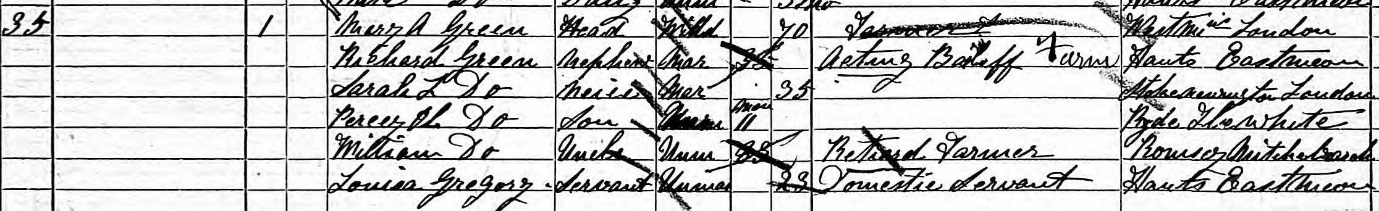 35 1 Mary A Green Head Widd 70 Farmer Westmin London
Richard Green Nephew Mar 35 Acting Bailiff Farm Hants Eastmeon
Sarah L Do Neice Mar 35 London
Percy Do Son 11 Ryde I of White
William Do Uncle Unm Retired Farmer Romsey
Louisa Gregory Servant Unmar 23 Domestic Servant Hants Eastmeon